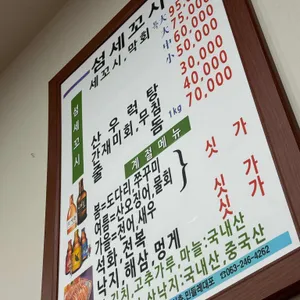 섬세꼬시
세꼬시, 막회
특대 95,000
대 75,000
중 60,000
소 50,000
산우럭탕 30,000
간재미회무침 40,000
돌돔 1kg 70,000
섬세꼬시
계절메뉴
봄=도다리, 쭈꾸미
여름=산오징어, 물회
가을=전어, 새우
석화, 전복
낙지, 해삼, 멍게
싯가
싯가
싯가
김치, 고추가루, 마늘:국내산
산낙지:국내산, 중국산
063-246-4262